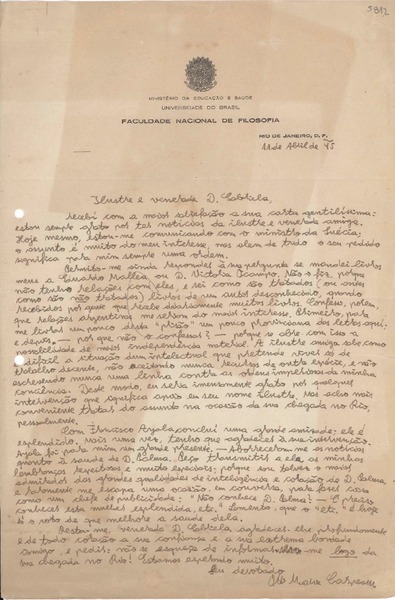 5812
MINISTÉRIO DA EDUCAÇÃO E SAÚDE
UNIVERSIDADE DO BRASIL
FACULDADE NACIONAL DE FILOSOFIA
RIO DE JANEIRO, D. F.
11 de Abril de 45
Ilustre e venerada D. Gabriela,
recebi com a maior satisfação a sua carta gentilíssima:
estou sempre grato por ter notícias da ilustre e venerada amiga.
Hoje mesmo, estou-me comunicando com o ministro da Suécia;
o assunto é muito do meu interesse, mas além de tudo o seu pedido
significa para mim sempre uma ordem.
Permita-me ainda responder à sua pergunta se mandei livros
meus a Eduardo Mallea ou D. Victoria Ocampo. Não o fiz, porque
não tenho relações com eles, e sei como são tratados (ou antes
como são não tratados) livros de um autor desconhecido, quando
recebidos por gente que recebe diariamente muitos livros. Confesso, porém,
que relações argentinas me seriam do maior interesse. Primeiro, para
me livrar um pouco desta "prisão" um pouco provinciana das letras aqui;
e depois — por que não o confessar? — porque se abre com isso a
possibilidade de maior independência material. A ilustre amiga sabe como
é difícil a situação dum intelectual que pretende viver só de
trabalho decente, não aceitando nunca recursos de outra espécie, e não
escrevendo nunca uma linha contra as ordens imperiosas da minha
consciência. Deste modo, eu seria imensamente grato por qualquer
intervenção que significa apoio em seu nome ilustre. Mas acho mais
conveniente tratar do assunto na ocasião da sua chegada no Rio,
pessoalmente.
Com Francisco Ayala concluí uma grande amizade; ele é
esplêndido. Mais uma vez, tenho que agradecer à sua intervenção.
Ayala foi para mim um grande presente. — Aborreceram-me as notícias
quanto à saúde de D. Palma. Peço transmitir a ela, as minhas
lembranças respeitosas e muito especiais; porque sou talvez o maior
admirador das grandes qualidades de inteligência e coração de D. Palma,
e raramente me escapa uma ocasião, em conversa, para ficar
como um chefe de publicidade: "Não conhece D. Palma? — É preciso
conhecer esta mulher esplêndida, etc." Lamento, que o "etc." é hoje
só o voto de que melhore a saúde dela.
Resta-me, venerada D. Gabriela agradecer-lhe profundamente
e de todo coração a sua confiança e a sua extrema bondade
amiga, e pedir: não se esqueça de informar-me logo da
sua chegada no Rio! Estamos esperando muito.
Seu devotado
Otto Maria Carpeaux